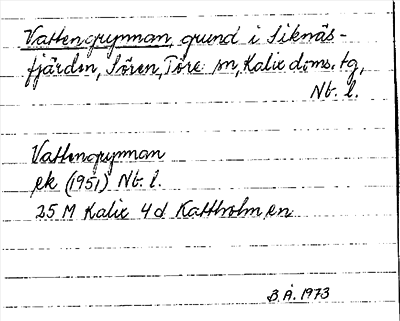 Vattengrynnan, grund i Siknäs-
fjärden, Sören, Töre sn, Kalix doms. tg,
Nb. l.
Vattengrynnan
ek (1951) Nb. l.
25 M Kalix 4d Kattholmen
B.Å. 1973